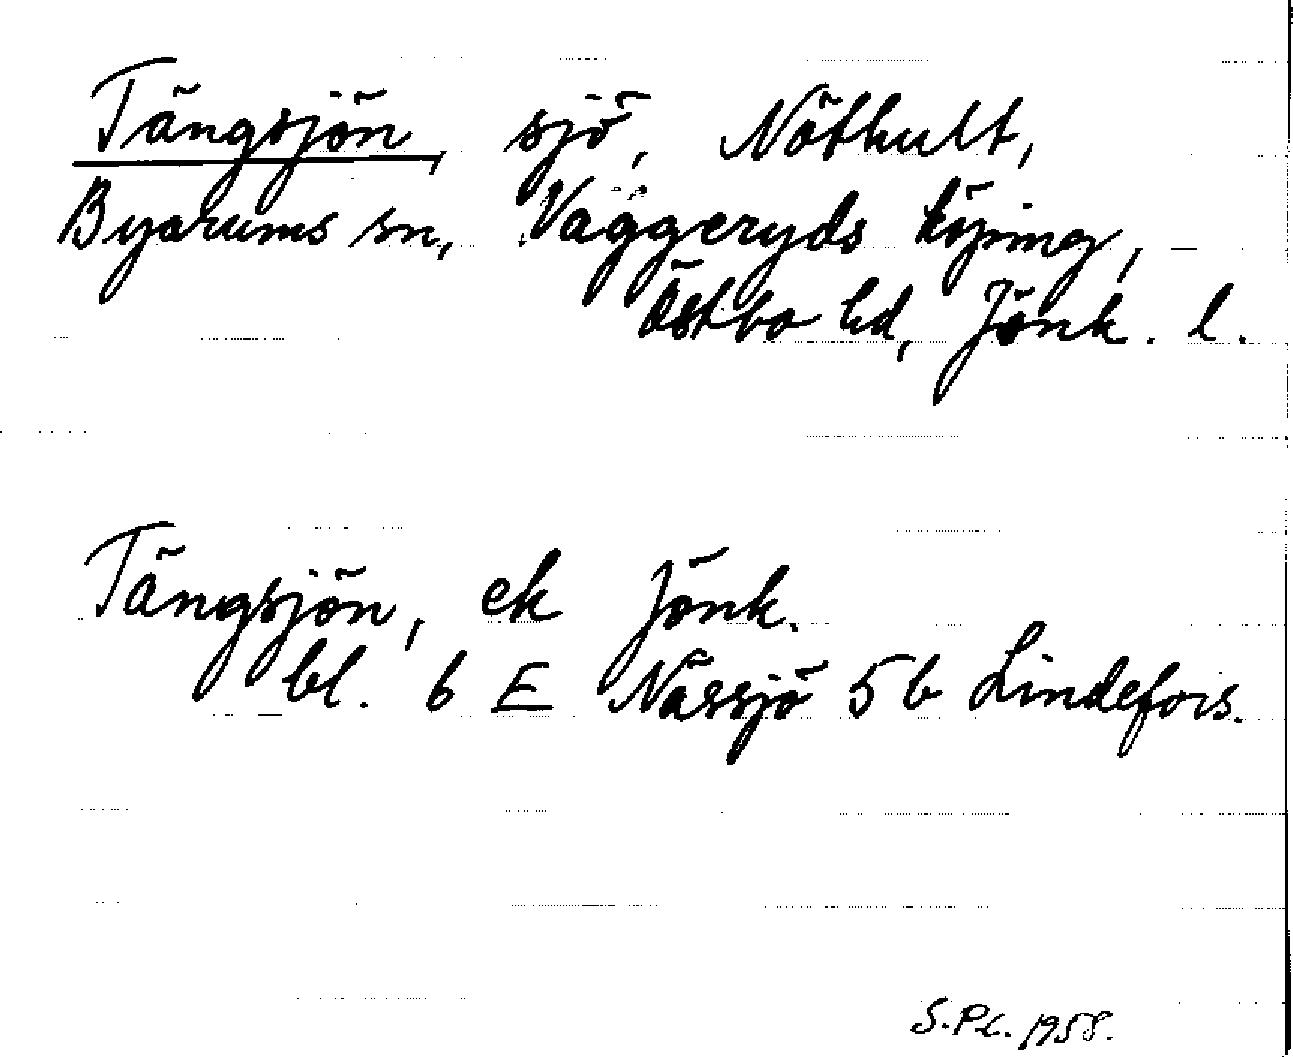 Tängsjön, sjö, Nöthult,
Byarums sn, Vaggeryds köping,
Östbo hd, Jönk. l.
Tängsjön, ek Jönk.
bl. 6 E Nässjö 5b Lindefors.
S.PL. 1958.